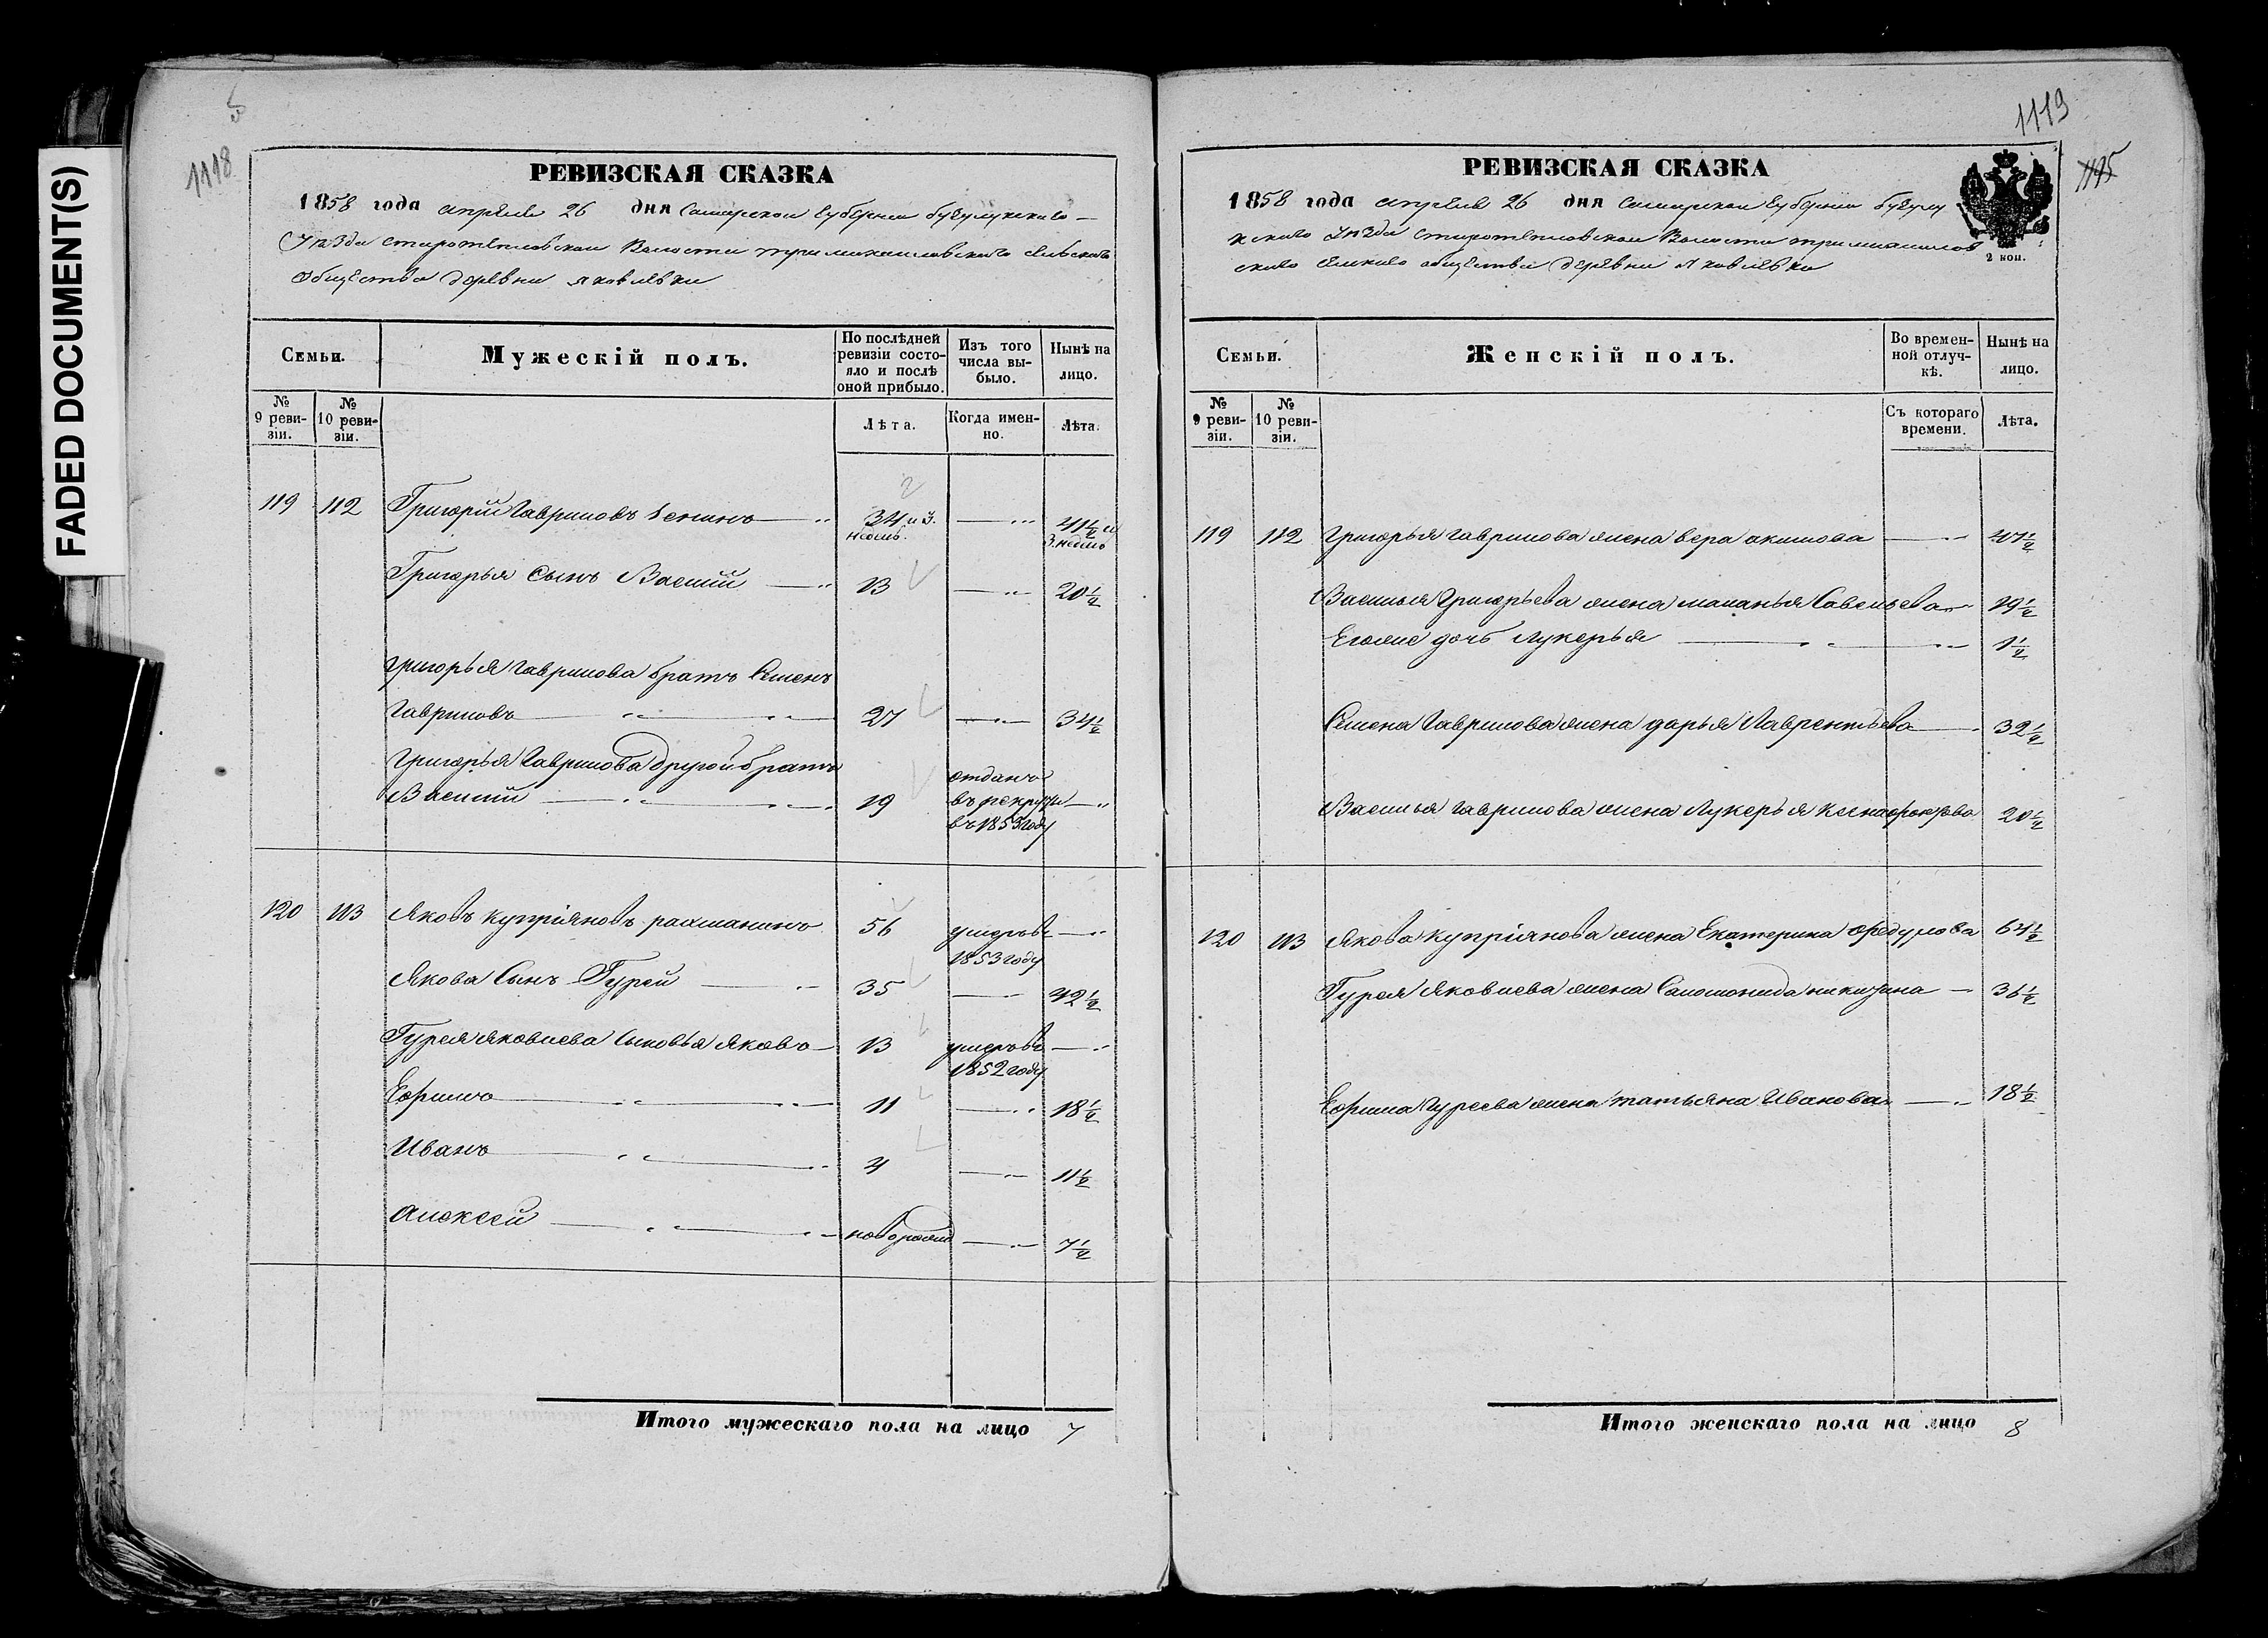 FADED DOCUMENT(S)
5
1118
РЕВИЗСКАЯ СКАЗКА
1858 года апреля 26 дня Самарской Губернии бугурускаго
Уѣзда старотепловской Волости
Общества деревни яковлевки
Семьи.
Мужескій полъ.
По послѣдней ревизіи состояло и послѣ оной прибыло.
Изъ того числа выбыло.
Нынѣ на лицо.
№ 9 ревизіи.
№ 10 ревизіи.
Лѣта.
Когда именно.
Лѣта.
119 112 Григорій Гавриловъ 34 и 3. недель. 41½ и 3. недель
Григорья Сынъ Василій 13 20½
Григорья Гаврилова братъ Семенъ
Гавриловъ 27 34½
Григорья Гаврилова другой братъ
Василий 19 отданъ въ рекруты въ 1853 году
120 113 Яковъ купріяновъ рахманинъ 56 умеръ въ 1853 году
Якова Сынъ Гурей 35 42½
Гурея яковлева Сыновья яковъ 13 умеръ въ 1852 году
Ефимъ 11 18½
Иванъ 4 11½
алексей новорожд 7½
Итого мужескаго пола на лицо 7
1119
1195
РЕВИЗСКАЯ СКАЗКА
2 коп.
1858 года апреля 26 дня Самарской Губернии бугуру
скаго Уѣзда старотепловской Волости
скаго общества деревни яковлевки
Семьи.
Женскій полъ.
Во временной отлучкѣ.
Нынѣ на лицо.
№ 9 ревизіи.
№ 10 ревизіи.
Съ котораго времени.
Лѣта.
119 112 Григорья Гаврилова жена вера акимова 47½
Василья Григорьева жена маланья Савельева 19½
Егоже дочь лукерья 1½
Семена Гаврилова жена дарья Лаврентьева 32½
Василья Гаврилова жена Лукерья 20½
120 113 Якова Купріянова жена Екатерина 64½
Гурея Яковлева жена Саломонида никитина 36½
Ефима Гуреева жена татьяна Иванова 18½
Итого женскаго пола на лицо 8